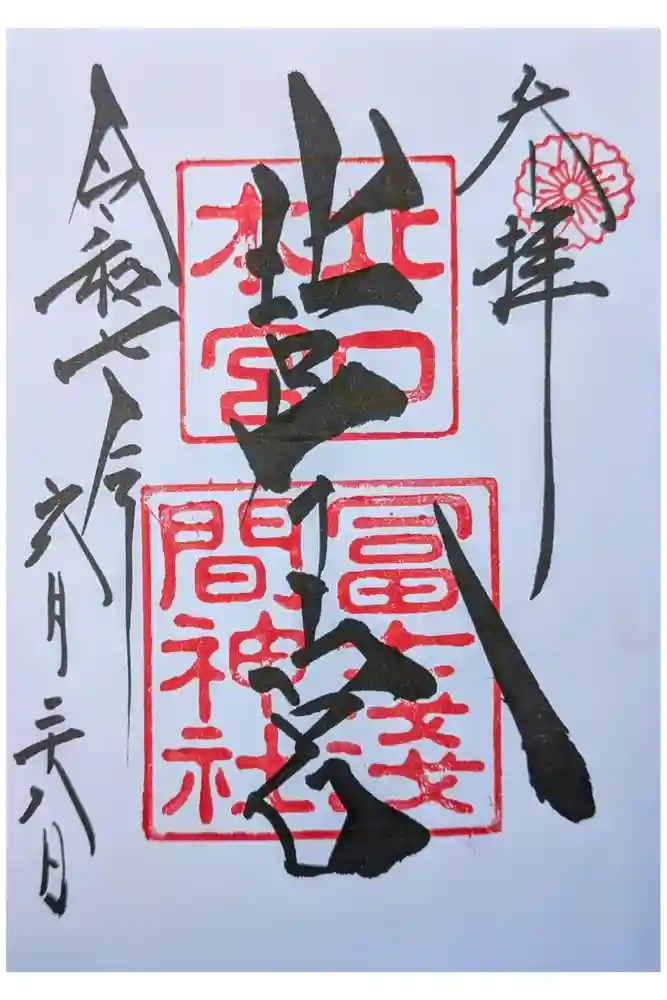 奉拝
北口
本宮
冨士淺
間神社
令和七年
六月二十八日